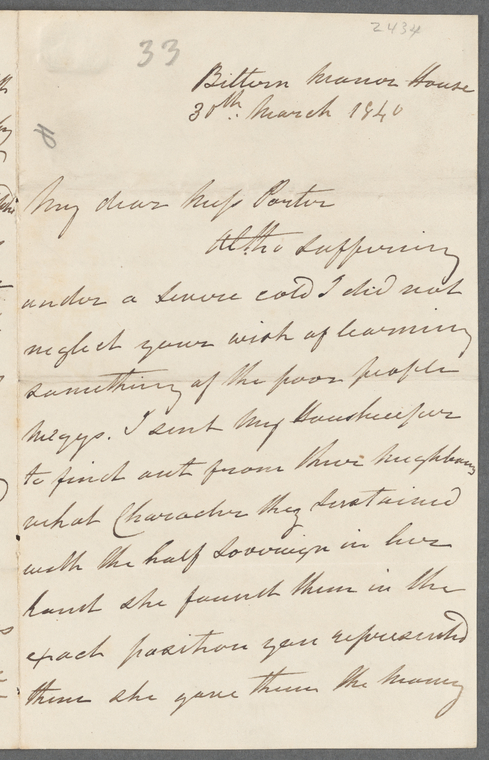 2434
33
Bittern Manor House
30th. March 1840
My dear Miss Porter
Altho' suffering
under a severe cold I did not
neglect your wish of learning
something of the poor people
Meggs. I sent my Housekeeper
to find out from their neighbours
what Character they sustained
with the half sovereign in her
hand she found them in the
exact position you represented
them she gave them the money